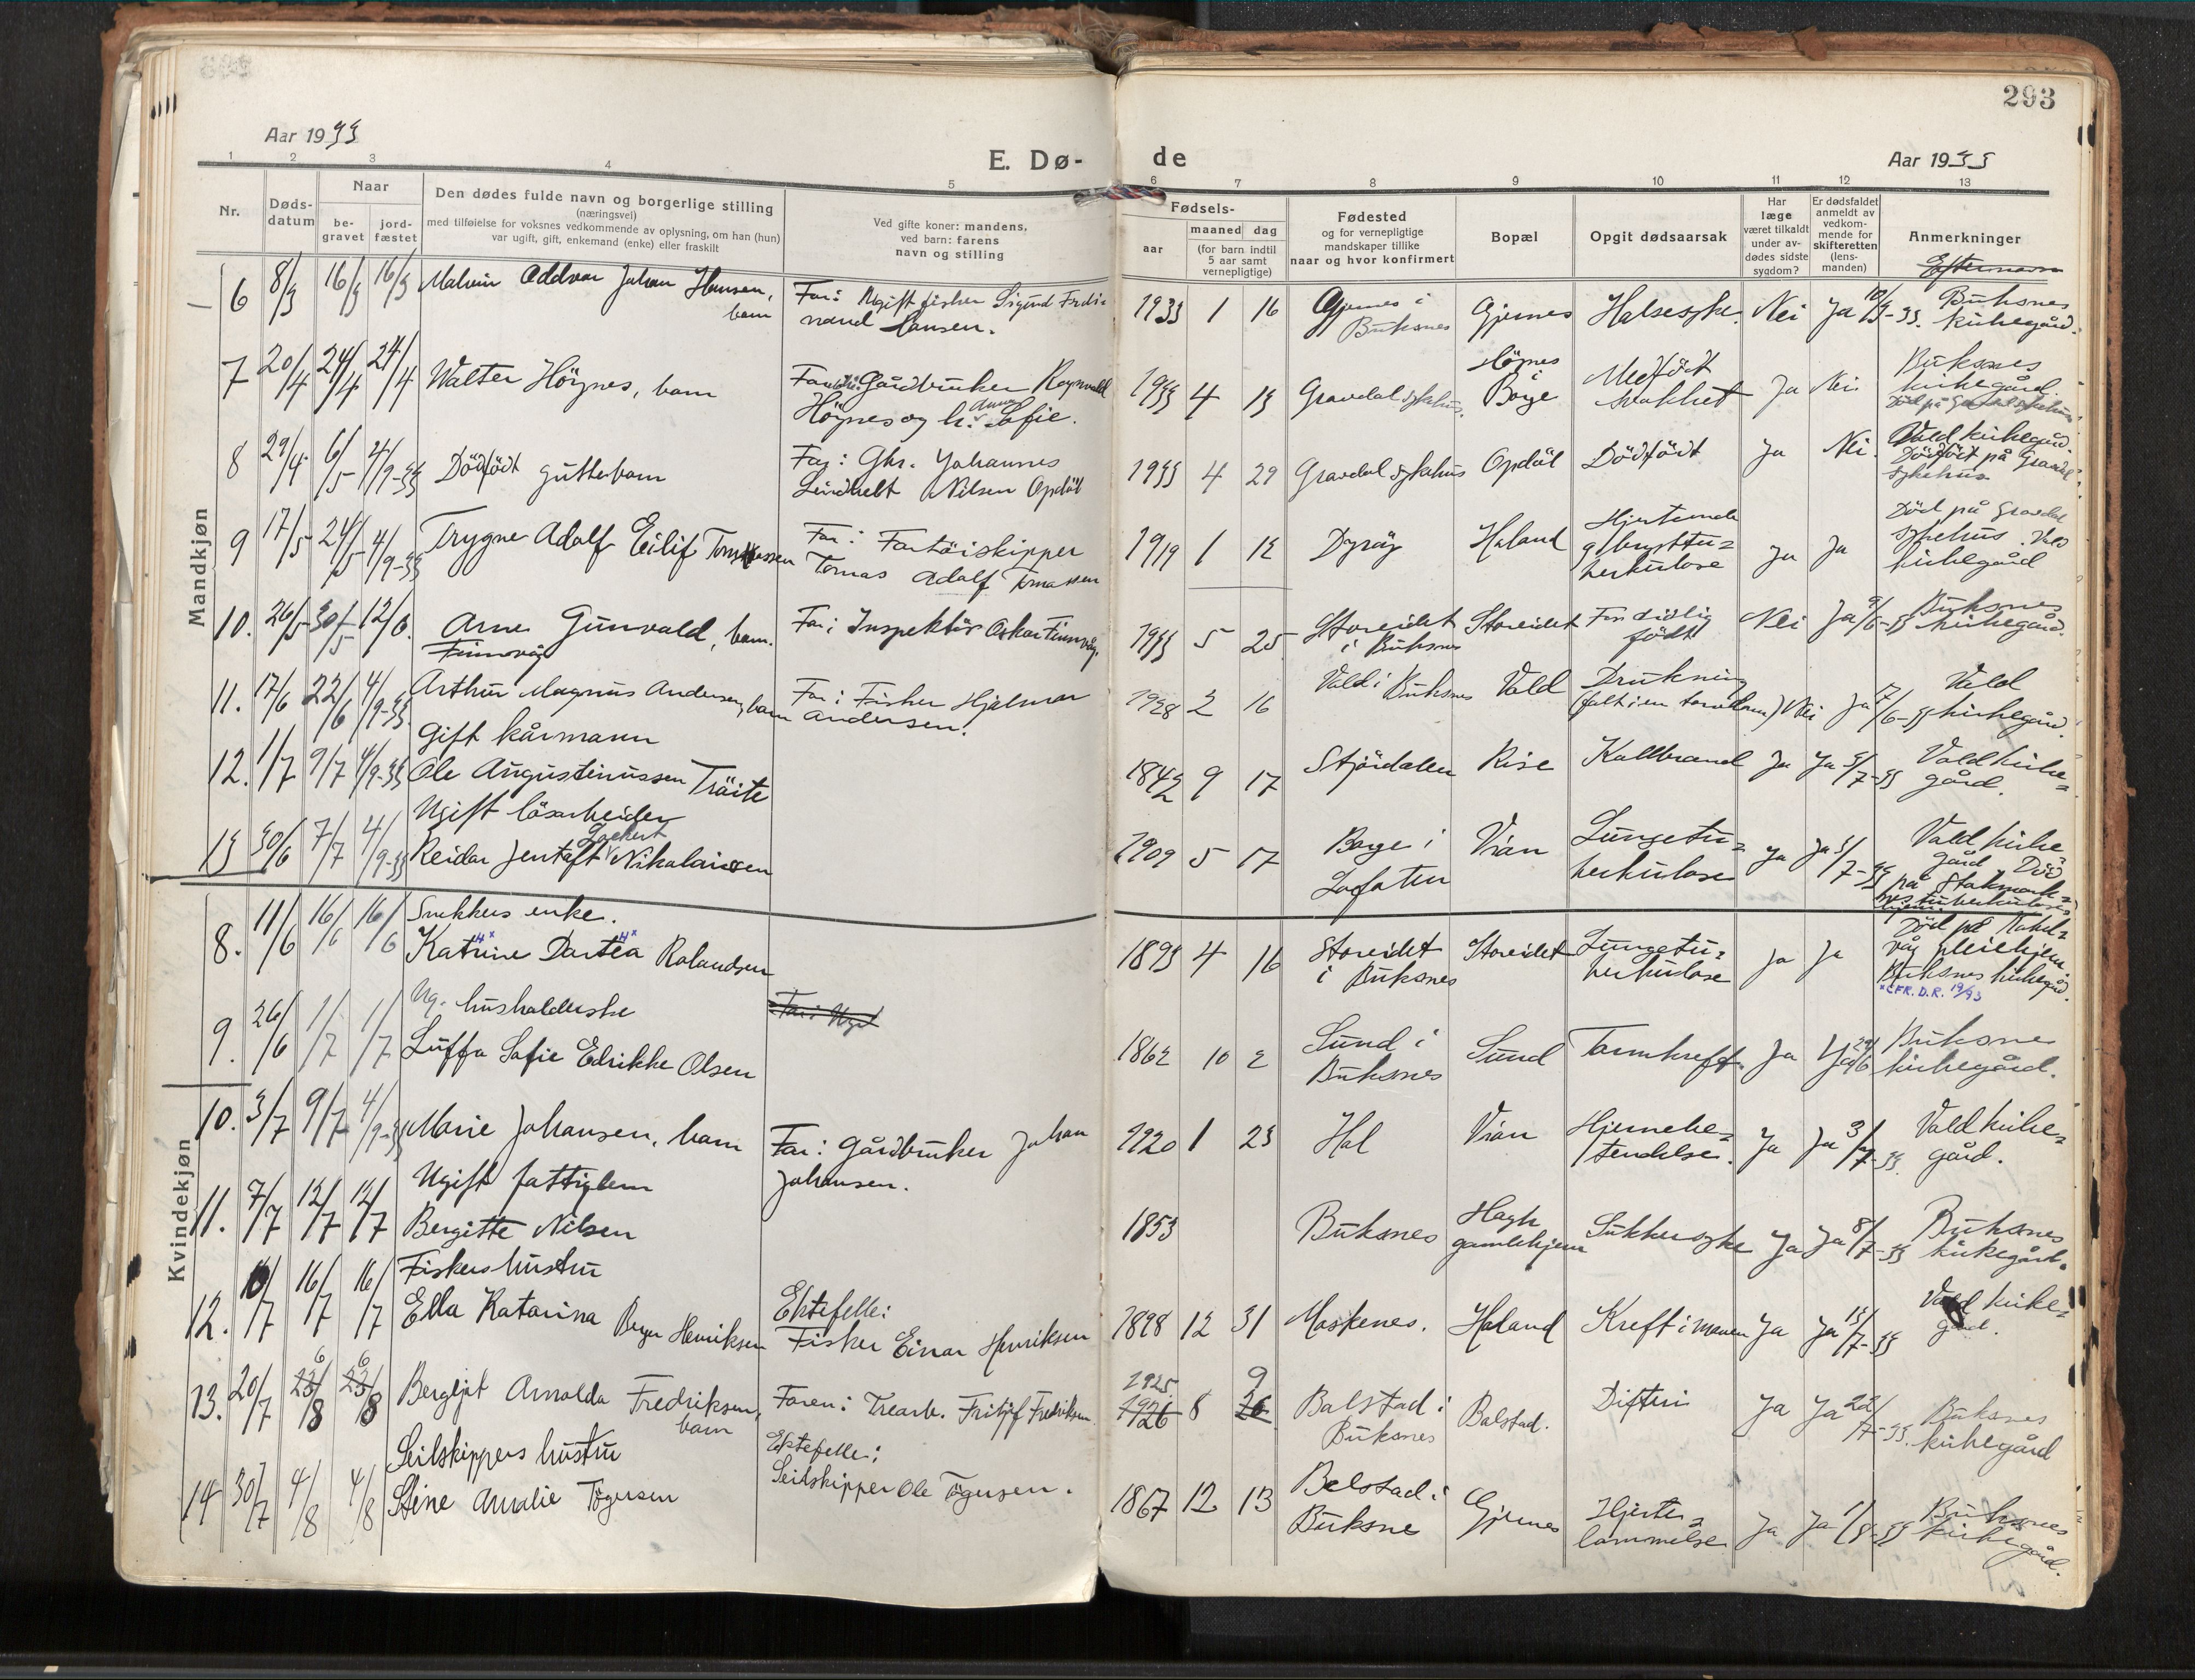 293
Aar 1933
E. Dø-
de
Aar 1933
1 2 3 4 5 6 7 8 9 10 11 12 13
Nr.
Døds-
datum
Naar
be-
gravet
jord-
fæstet
Den dødes fulde navn og borgerlige stilling
(næringsvei)
med tilføielse for voksnes vedkommende av oplysning, om han (hun)
var ugift, gift, enkemand (enke) eller fraskilt
Ved gifte koner: mandens,
ved barn: farens
navn og stilling
Fødsels-
aar
maaned dag
(for barn indtil
5 aar samt
vernepligtige)
Fødested
og for vernepligtige
mandskaper tillike
naar og hvor konfirmert
Bopæl
Opgit dødsaarsak
Har
læge
været tilkaldt
under av-
dødes sidste
sygdom?
Er dødsfaldet
anmeldt av
vedkom-
mende for
skifteretten
(lens-
manden)
Anmerkninger
Mandkjøn
6 8/3 16/3 16/3 Oddvar Johan Hansen,
barn
Far: Ugift fisker Sigurd Ferdi-
nand Hansen.
1933 1 16 Gjernes i
Buksnes
Gjernes Halsesyke. Nei Ja 10/3-33. Buksnes
kirkegård.
7 20/4 24/4 24/4 Walter Höynes, barn
Gårdbruker Ragnvald
Höynes og h. Anna Sofie.
1933 4 13 Gravdal sykehus.
Höynes
i
Borge
Medfödt
svakhet
Ja Nei. Buksnes
kirkegård.
Död på Gravdal sykehus
8 29/4 6/5 4/9-33 Dödfödt guttebarn
Far: Ghr. Johannes
Lindhelt Nilsen Opdöl
1933 4 29 Gravdal sykehus Opdöl Dödfödt Ja Nei. Vald kirkegård.
Dödfödt på Gravdal
sykehus
9 17/5 24/5 4/9-33 Trygve Adolf Eilif Tomassen
Far: Fartöiskipper
Tomas Adolf Tomassen
1919 1 12 Dyröy Haland Hjertesmde
g/brysttu=
berkulose
Ja Ja Död på Gravdal
sykehus. Vald
kirkegård
10. 26/5 30/5 12/6. Arne Gunvald, barn.
Finnvåg
Far: Inspektör Oskar Finnvåg.
1933 5 25 Storeidet
i Buksnes
Storeidet For tidlig
födt
Nei Ja 9/6-33 Buksnes
kirkegård.
11. 17/6 22/6 4/9-33. Arthur Magnus Andersen, barn
Far: Fisker Hjalmar
Andersen.
1928 2 16 Vald i Buksnes Vald Drukning
Nei Ja 17/6-33 Vald
kirkegård.
Gift kårmann
12. 1/7 9/7 4/9-33 Ole Augustinussen Träite
1842 9 17 Stjördalen Rise Kallbrand Ja Ja 3/7-33 Vald kirke=
gård.
Ugift lösarbeider
13 30/6 7/7 4/9-33 Reidar Jentoft Zackert Nikolaisen
1909 5 17 Borge i
Lofoten
Vian Lungetu=
berkulose
Ja Ja 3/7-33 Vald kirke=
gård Död
på Stokmark=
nes tuberkulose=
hjem.
Kvindekjøn
Snekkers enke.
8. 11/6 16/6 16/6 Katrine Dartea Rolandsen
1893 4 16 Storeidet
i Buksnes
Storeidet Lungetu=
berkulose
Ja Ja Död på Kabel=
våg pleiehjem.
Buksnes kirkegård.
*CFR. D.R. 19/93
Ug. husholderske
9. 26/6 1/7 1/7 Luffa Sofie Edrikke Olsen
1862 10 2 Sund i
Buksnes
Sund Tarmkreft. Ja Ja 29/6 Buksnes
kirkegård.
10. 3/7 9/7 4/9-33 Marie Johansen, barn
Far: Gårdbruker Johan
Johansen.
1920 1 23 Hol Vian Hjernebe=
tendelse.
Ja Ja 3/7-33. Vald kirke=
gård.
Ugift fattiglem
11. 7/7 12/7 12/7 Bergitte Nilsen
1853 Buksnes Hagh
gamlehjem
Sukkersyke Ja Ja 8/7-33 Buksnes
kirkegård.
Fiskers hustru
12. 10/7 16/7 16/7 Ella Katarina Berger Henriksen
Ektefelle:
Fisker Einar Henriksen
1898 12 31 Moskenes. Haland Kreft i maven Ja Ja 13/7-33 Vald kirke=
gård.
13. 20/7 6/8 6/8 Bergljot Arnolda Fredriksen,
barn
Faren: Trearb. Fritjof Fredriksen
1925 1926 8 9 26 Balstad i
Buksnes
Balstad. Difteri Ja Ja 22/7-33. Buksnes
kirkegård
Seilskippers hustru
14 30/7 4/8 4/8 Stine Amalie Tögersen
Ektefelle:
Seilskipper Ole Tögersen.
1867 12 13 Balstad i
Buksne
Gjernes Hjerte=
lammelse
Ja Ja 1/8-33 Buksnes
kirkegård.